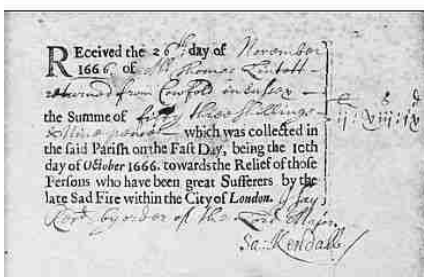 REceived the 26th day of November
1666 of Mr Thomas Lintott
returned from Cowfold in Sussex
the Summe of fifty three shillings
& nine pence which was collected in
the said Parish on the Fast Day, being the 10th
day of October 1666. towards the Relief of those
Persons who have been great Sufferers by the
late Sad Fire within the City of London. I say
by order of the Lord Major.
Sa: Kendall
l s d
ij : xiij : ix